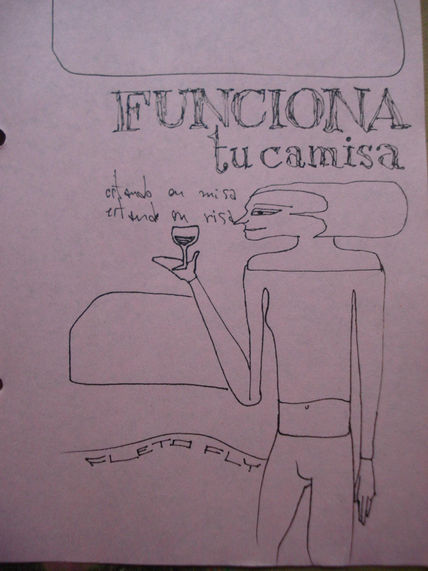 FUNCIONA
tu camisa
estando en misa
estando en risa
FLETO FLY